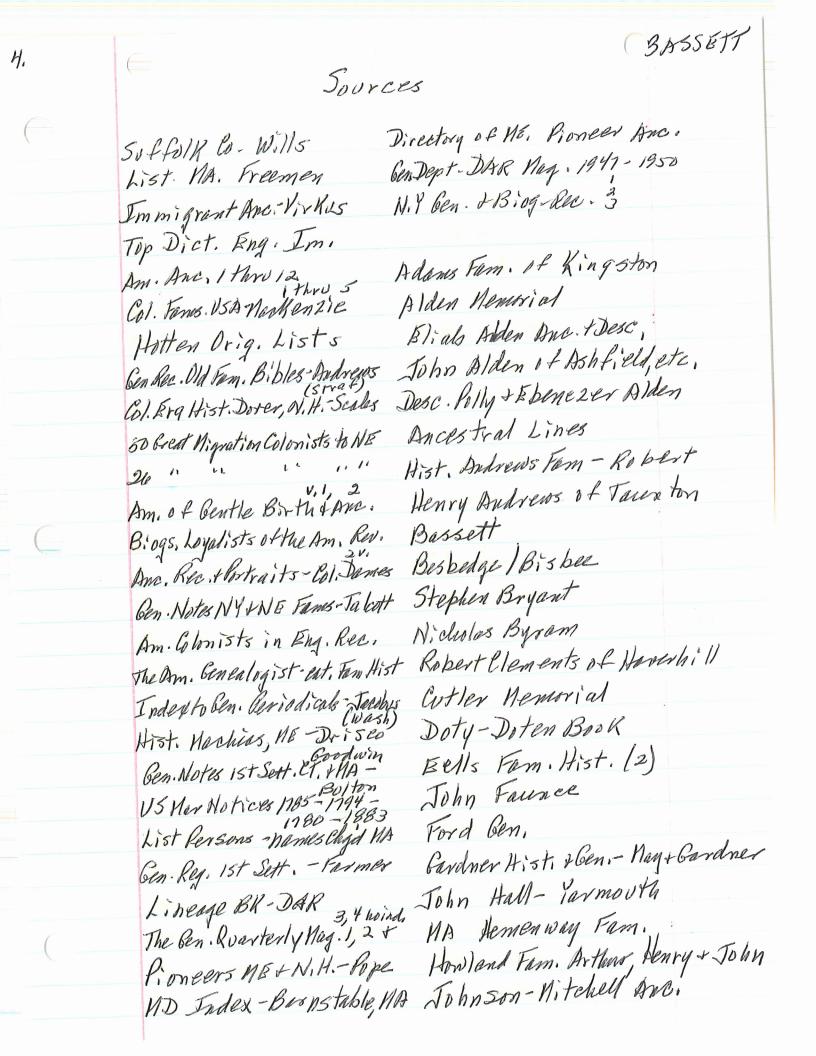 4.
BASSETT
Sources
Suffolk Co. Wills
List. MA. Freemen
Immigrant Anc.-Virkus
Top Dict. Eng. Im.
Am. Anc. 1 thru 12
1 thru 5
Col. Fams. USA-MacKenzie
Hotten Orig. Lists
Gen Rec. Old Fam. Bibles-Andrews
(Straf)
Col. Era Hist. Dover, N.H.-Scales
50 Great Migration Colonists to NE
26 " " " " "
v. 1, 2
Am. of Gentle Birth & Anc.
Biogs. Loyalists of the Am. Rev.
2v.
Anc. Rec. + Portraits-Col. Dames
Gen. Notes NY + NE Fams-Talcott
Am. Colonists in Eng. Rec.
The Am. Genealogist-cat. Fam Hist
Index to Gen. Periodicals-Jacobus
(Wash)
Hist. Machias, ME-Drisco
Goodwin
Gen. Notes 1st Sett. CT. + MA -
Bolton
US Mar Notices 1785-1794-
1780-1883
List Persons-names Chg'd MA
Gen. Reg. 1st Sett. - Farmer
Lineage BK-DAR
3, 4 
The Gen. Quarterly Mag. 1, 2 +
Pioneers ME + N.H.-Pope
MD Index-Barnstable, MA
Directory of ME. Pioneer Anc.
Gen Dept-DAR Mag. 1947-1950
N.Y Gen. + Biog-Rec. 1 2 3
Adams Fam. of Kingston
Alden Memorial
Eliab Alden Anc. + Desc.
John Alden of Ashfield, etc.
Desc. Polly + Ebenezer Alden
Ancestral Lines
Hist. Andrews Fam - Robert
Henry Andrews of Taunton
Bassett
Besbedge/Bisbee
Stephen Bryant
Nicholas Byram
Robert Clements of Haverhill
Cutler Memorial
Doty-Doten Book
Eells Fam. Hist. (2)
John Faunce
Ford Gen.
Gardner Hist. + Gen.- May + Gardner
John Hall-Yarmouth
MA Hemenway Fam.
Howland Fam. Arthur, Henry + John
Johnson-Mitchell Anc.